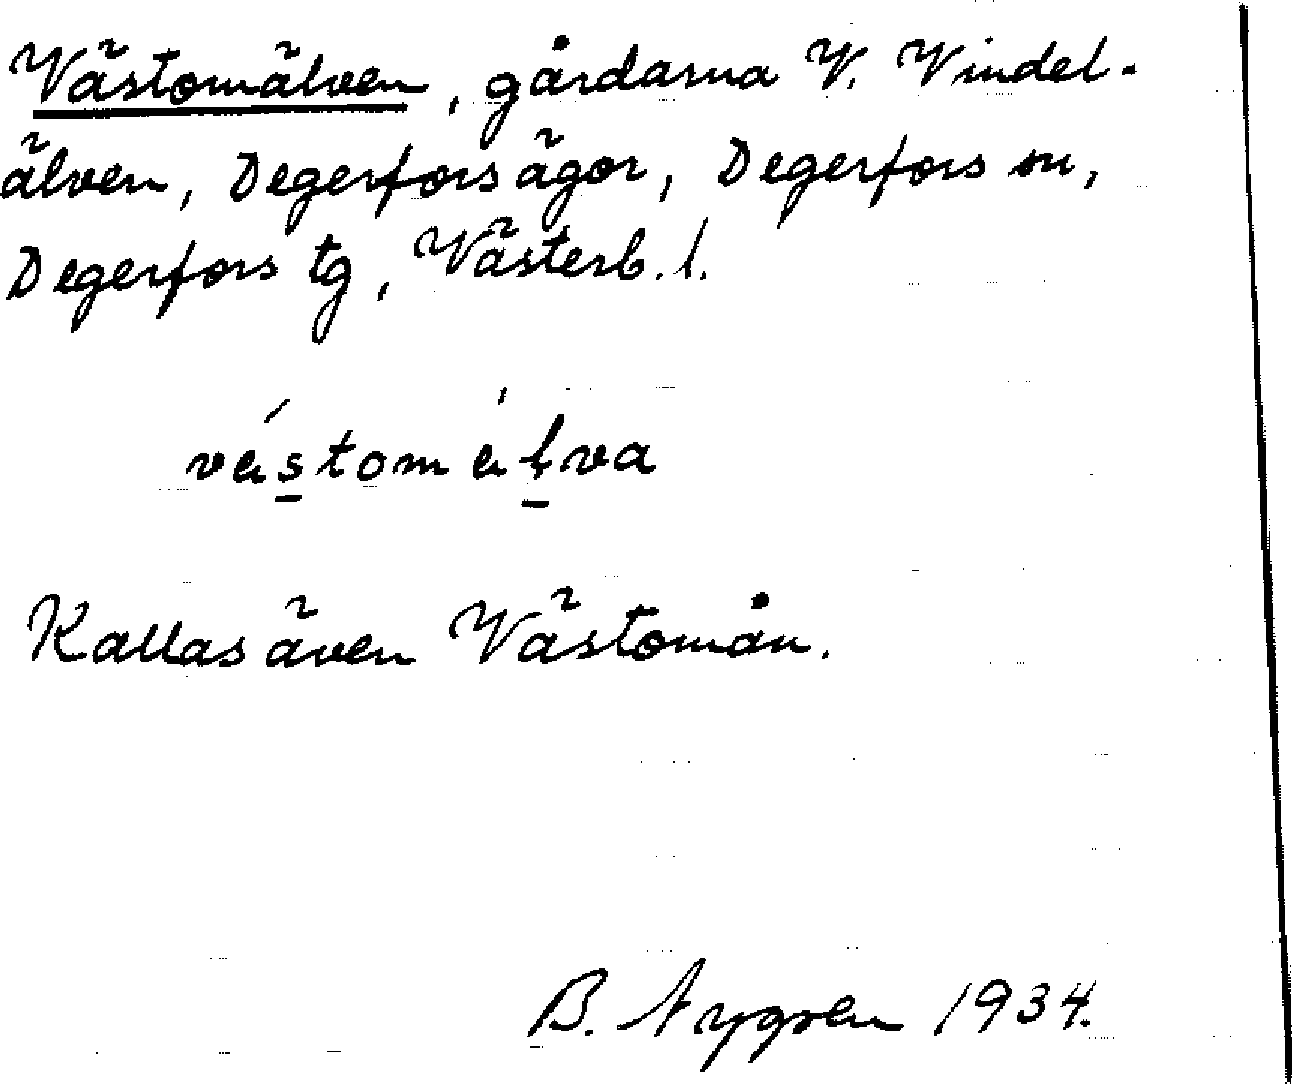 Västomälven, gårdarna V. Vindel-
älven, Degerfors ägor, Degerfors sn,
Degerfors tg, Västerb. l.
västomälva
Kallas även Västomån.
B. Nygren 1934.